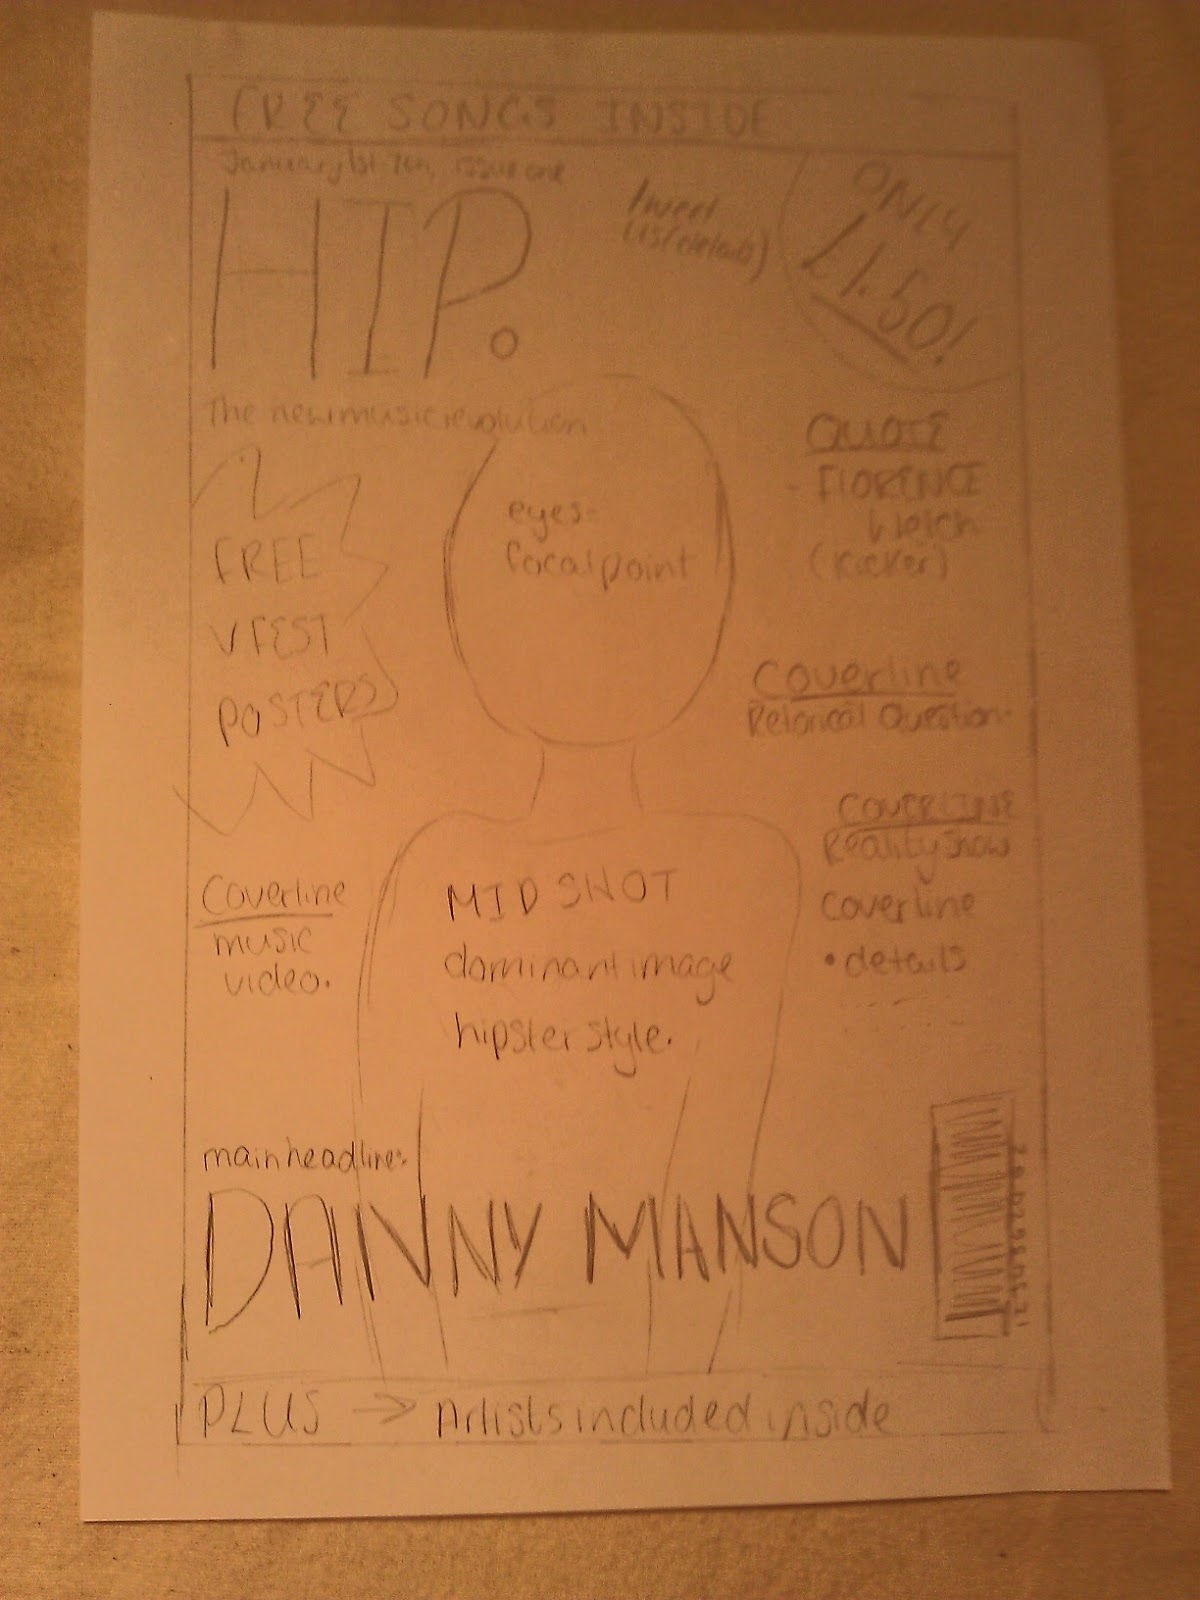 FREE SONGS INSIDE
January 1st issue one
HIP.
Tweet
US (details)
ONLY
£1.50!
The new music revolution
QUOTE
- FLORENCE
Welch
(kicker)
eyes=
focal point
FREE
V FEST
POSTERS
Coverline
Retorical Question.
COVERLINE
Reality Show
coverline
• details
Coverline
music
video.
MID SHOT
dominant image
hipster style.
main headline:
DANNY MANSON
PLUS → Artists included inside